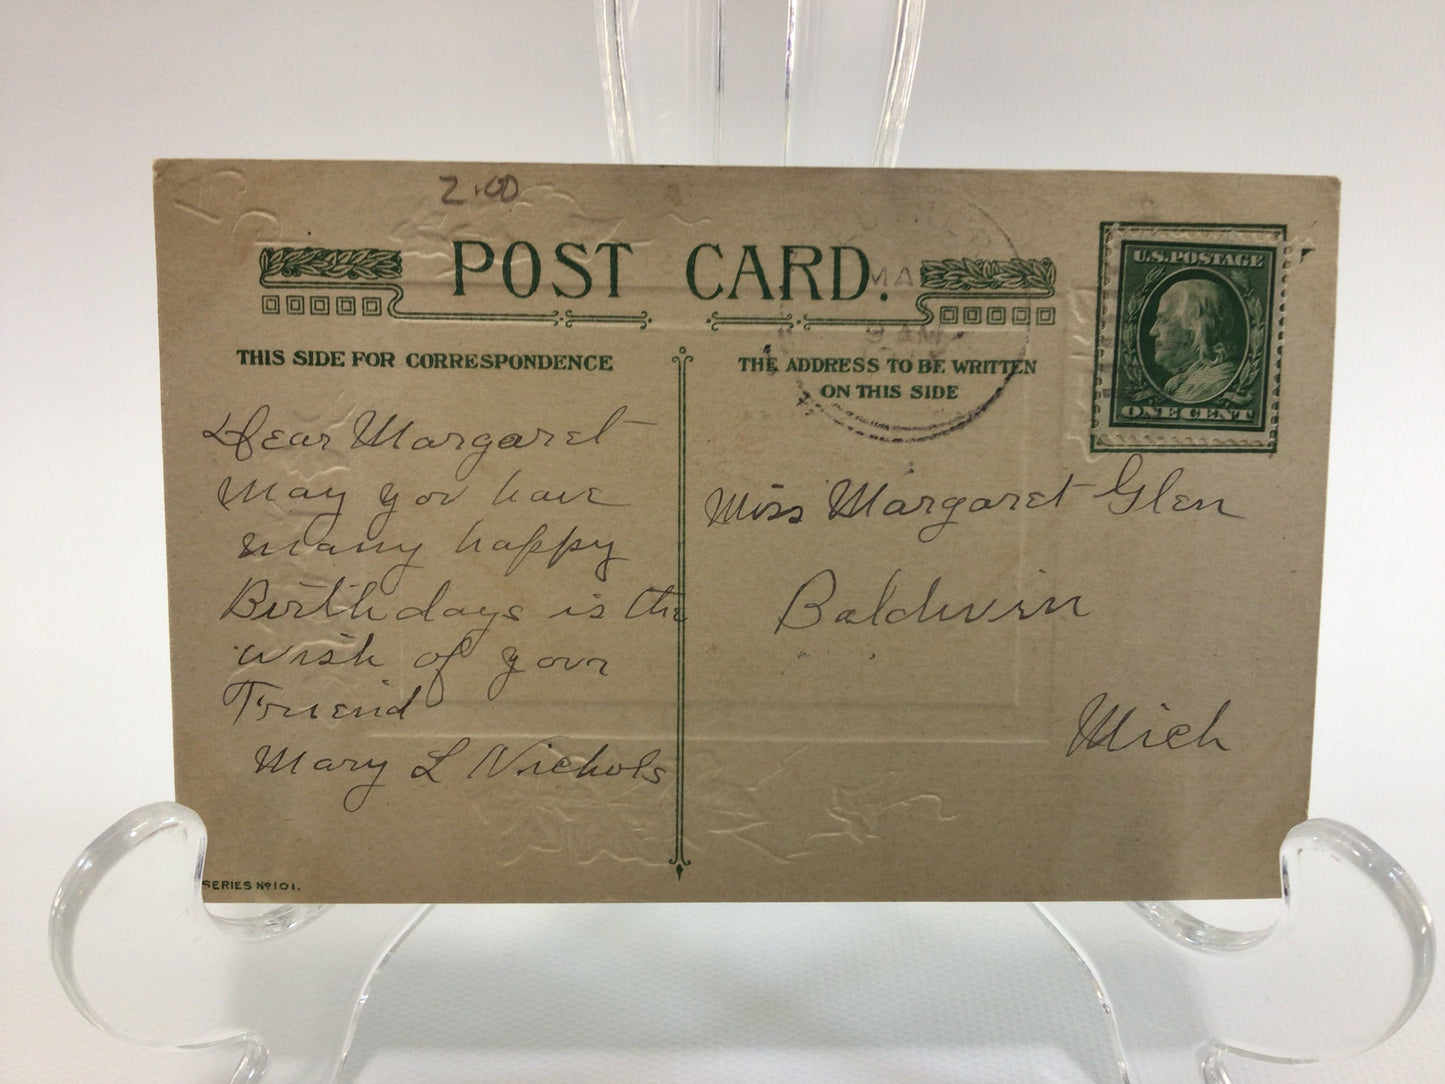 2.00
POST CARD.
MA
9 AM
U.S. POSTAGE
ONE CENT
THIS SIDE FOR CORRESPONDENCE
THE ADDRESS TO BE WRITTEN
ON THIS SIDE
Dear Margaret
May you have
many happy
Birthdays is the
wish of your
Friend
Mary L Nichols
Miss Margaret Glen
Baldwin
Mich
SERIES No 101.